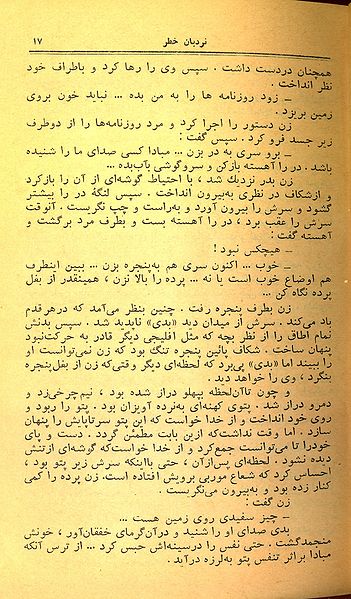 نردبان خطر ۱۷
همچنان دردست داشت . سپس وی را رها کرد و باطراف خود
نظر انداخت .
ـ زود روزنامه ها را به من بده ... نباید خون بروی
زمین بریزد .
زن دستور را اجرا کرد و مرد روزنامه‌ها را از دوطرف
زیر جسد فرو کرد . سپس گفت :
ـ برو سری به در بزن ... مبادا کسی صدای ما را شنیده
باشد . در را آهسته بازکن و سروگوشی بآب‌بده ...
زن بدر نزدیك شد ، با احتیاط گوشه‌ای از آن را بازکرد
و ازشکاف در نظری به‌بیرون انداخت . سپس لنگهٔ در را بیشتر
گشود و سرش را بیرون آورد و به‌راست و چپ نگریست . آنوقت
سرش را عقب برد ، در را آهسته بست و بطرف مرد برگشت و
آهسته گفت :
ـ هیچکس نبود !
ـ خوب ... اکنون سری هم به‌پنجره بزن ... ببین اینطرف
هم اوضاع خوب است یا نه ... پرده را بالا نزن ، همینقدر از بغل
پرده نگاه کن ...
زن بطرف پنجره رفت . چنین بنظر می‌آمد که درهرقدم
باد می‌کند . سرش از میدان دید «بدی» ناپدید شد . سپس بدنش
تمام اطاق را از نظر بچه که مثل افلیجی دیگر قادر به حرکت‌نبود
پنهان ساخت . شکاف پائین پنجره تنگ بود که زن نمی‌توانست او
را ببیند اما «بدی» پی‌برد که لحظه‌ای دیگر وقتی‌که زن از بغل‌پنجره
بنگرد ، وی را خواهد دید .
و چون تاآن‌لحظه بپهلو دراز شده بود ، نیم‌چرخی‌زد و
دمرو دراز شد . پتوی کهنه‌ای به‌نرده آویزان بود . پتو را ربود و
روی خود انداخت و از خدا خواست که این پتو سرتاپایش را پنهان
سازد . اما وقت نداشت‌که ازین بابت مطمئن گردد . دست و پای
خودرا تا می‌توانست جمع‌کرد و از خدا خواست‌که گوشه‌ای ازتنش
دیده نشود . لحظه‌ای پس‌ازآن ، حتی بااینکه سرش زیر پتو بود ،
احساس کرد که شعاع موربی برویش افتاده است. زن پرده را کمی
کنار زده بود و به‌بیرون می‌نگریست .
زن گفت :
ـ چیز سفیدی روی زمین هست ...
بدی صدای او را شنید و درآن‌گرمای خفقان‌آور ، خونش
منجمدگشت . حتی نفس را درسینه‌اش حبس کرد ... از ترس آنکه
مبادا براثر تنفس پتو به‌لرزه درآید .